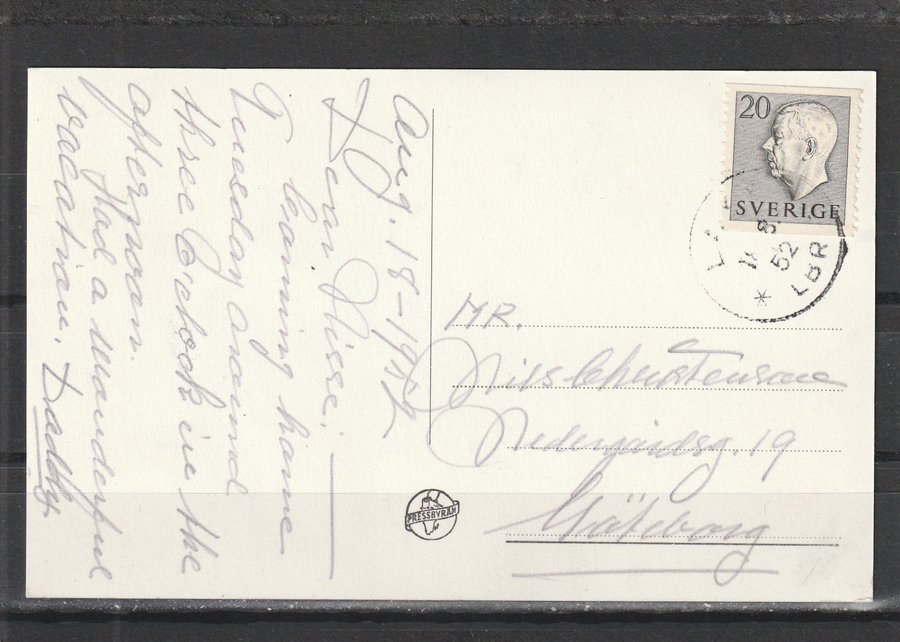 Aug. 18-1952
Dear Nisse!
Coming home
Tuesday around
three O'clock in the
afternoon.
Had a wonderful
vacation. Daddy.
20
SVERIGE
8
52
MR.
Nils Christensson
Nedergårdsg. 19
Göteborg
PRESSBYRÅN